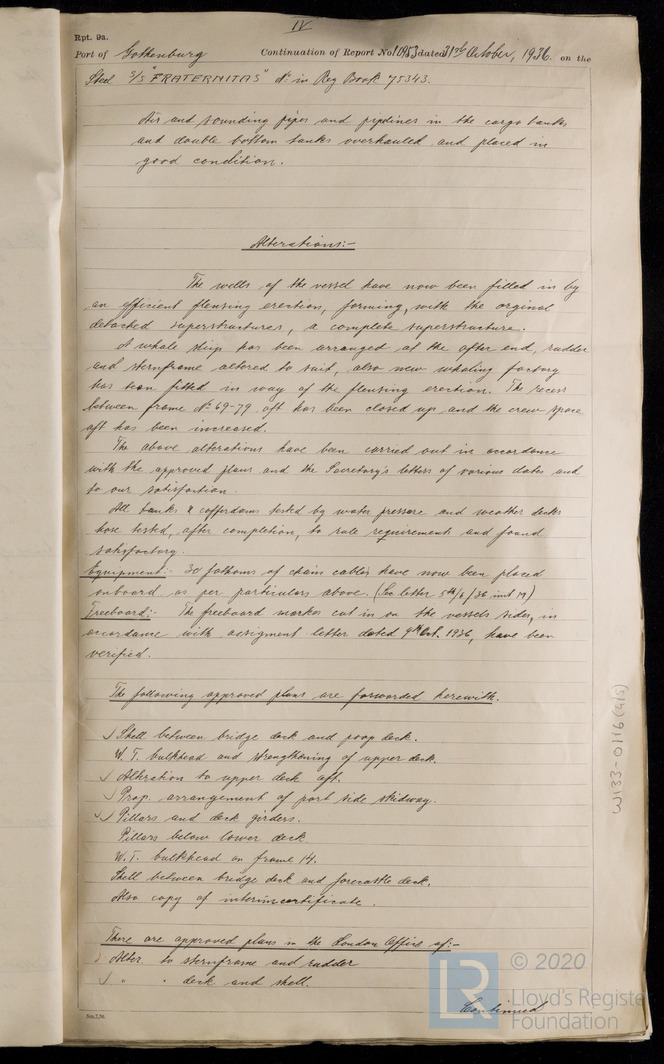 IV
Rpt. 9a.
Port of Gothenburg Continuation of Report No. 10953 dated 31st October, 1936. on the
Steel S/S "FRATERNITAS" No in Reg Book 75343.
Air and sounding pipes and pipelines in the cargo tanks
and double bottom tanks overhauled and placed in
good condition.
Alterations:-
The wells of the vessel have now been filled in by
an efficient flensing erection, forming, with the orginal
detached superstructures, a complete superstructure.
A whale slip has been arranged at the after end, rudder
and sternframe altered to suit, also new whaling factory
has been fitted in way of the flensing erection. The recess
between frame No 69-79 aft has been closed up and the crew space
aft has been increased.
The above alterations have been carried out in accordance
with the approved plans and the Secretary's letters of various dates and
to our satisfaction.
All tanks & cofferdams tested by water pressure and weather decks
hose tested, after completion, to rule requirements and found
satisfactory.
Equipment:- 30 fathoms of chain cables have now been placed
onboard as per particulars above. (See letter 5th/6/36 init M)
Freeboard:- The freeboard markes cut in on the vessels sides, in
accordance with assigment letter dated 9th Oct. 1936, have been
verified.
The following approved plans are forwarded herewith.
✓ Shell between bridge deck and poop deck.
W.T. bulkhead and strengthening of upper deck.
✓ Alteration to upper deck aft.
✓ Prop. arrangement of port side skidway.
✓ Pillars and deck girders.
Pillars below lower deck
W.T. bulkhead on frame 14.
Shell between bridge deck and forecastle deck.
Also copy of interimcertificate.
There are approved plans in the London Office of:-
✓ Alter. to sternframe and rudder
✓ " " deck and shell.
Continued
W133-0116 (4/5)
LR
© 2020
Lloyd's Registe
Foundation